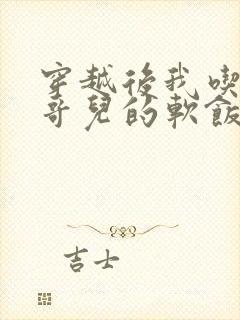 穿越後我喫
哥兒的軟飯
吉士